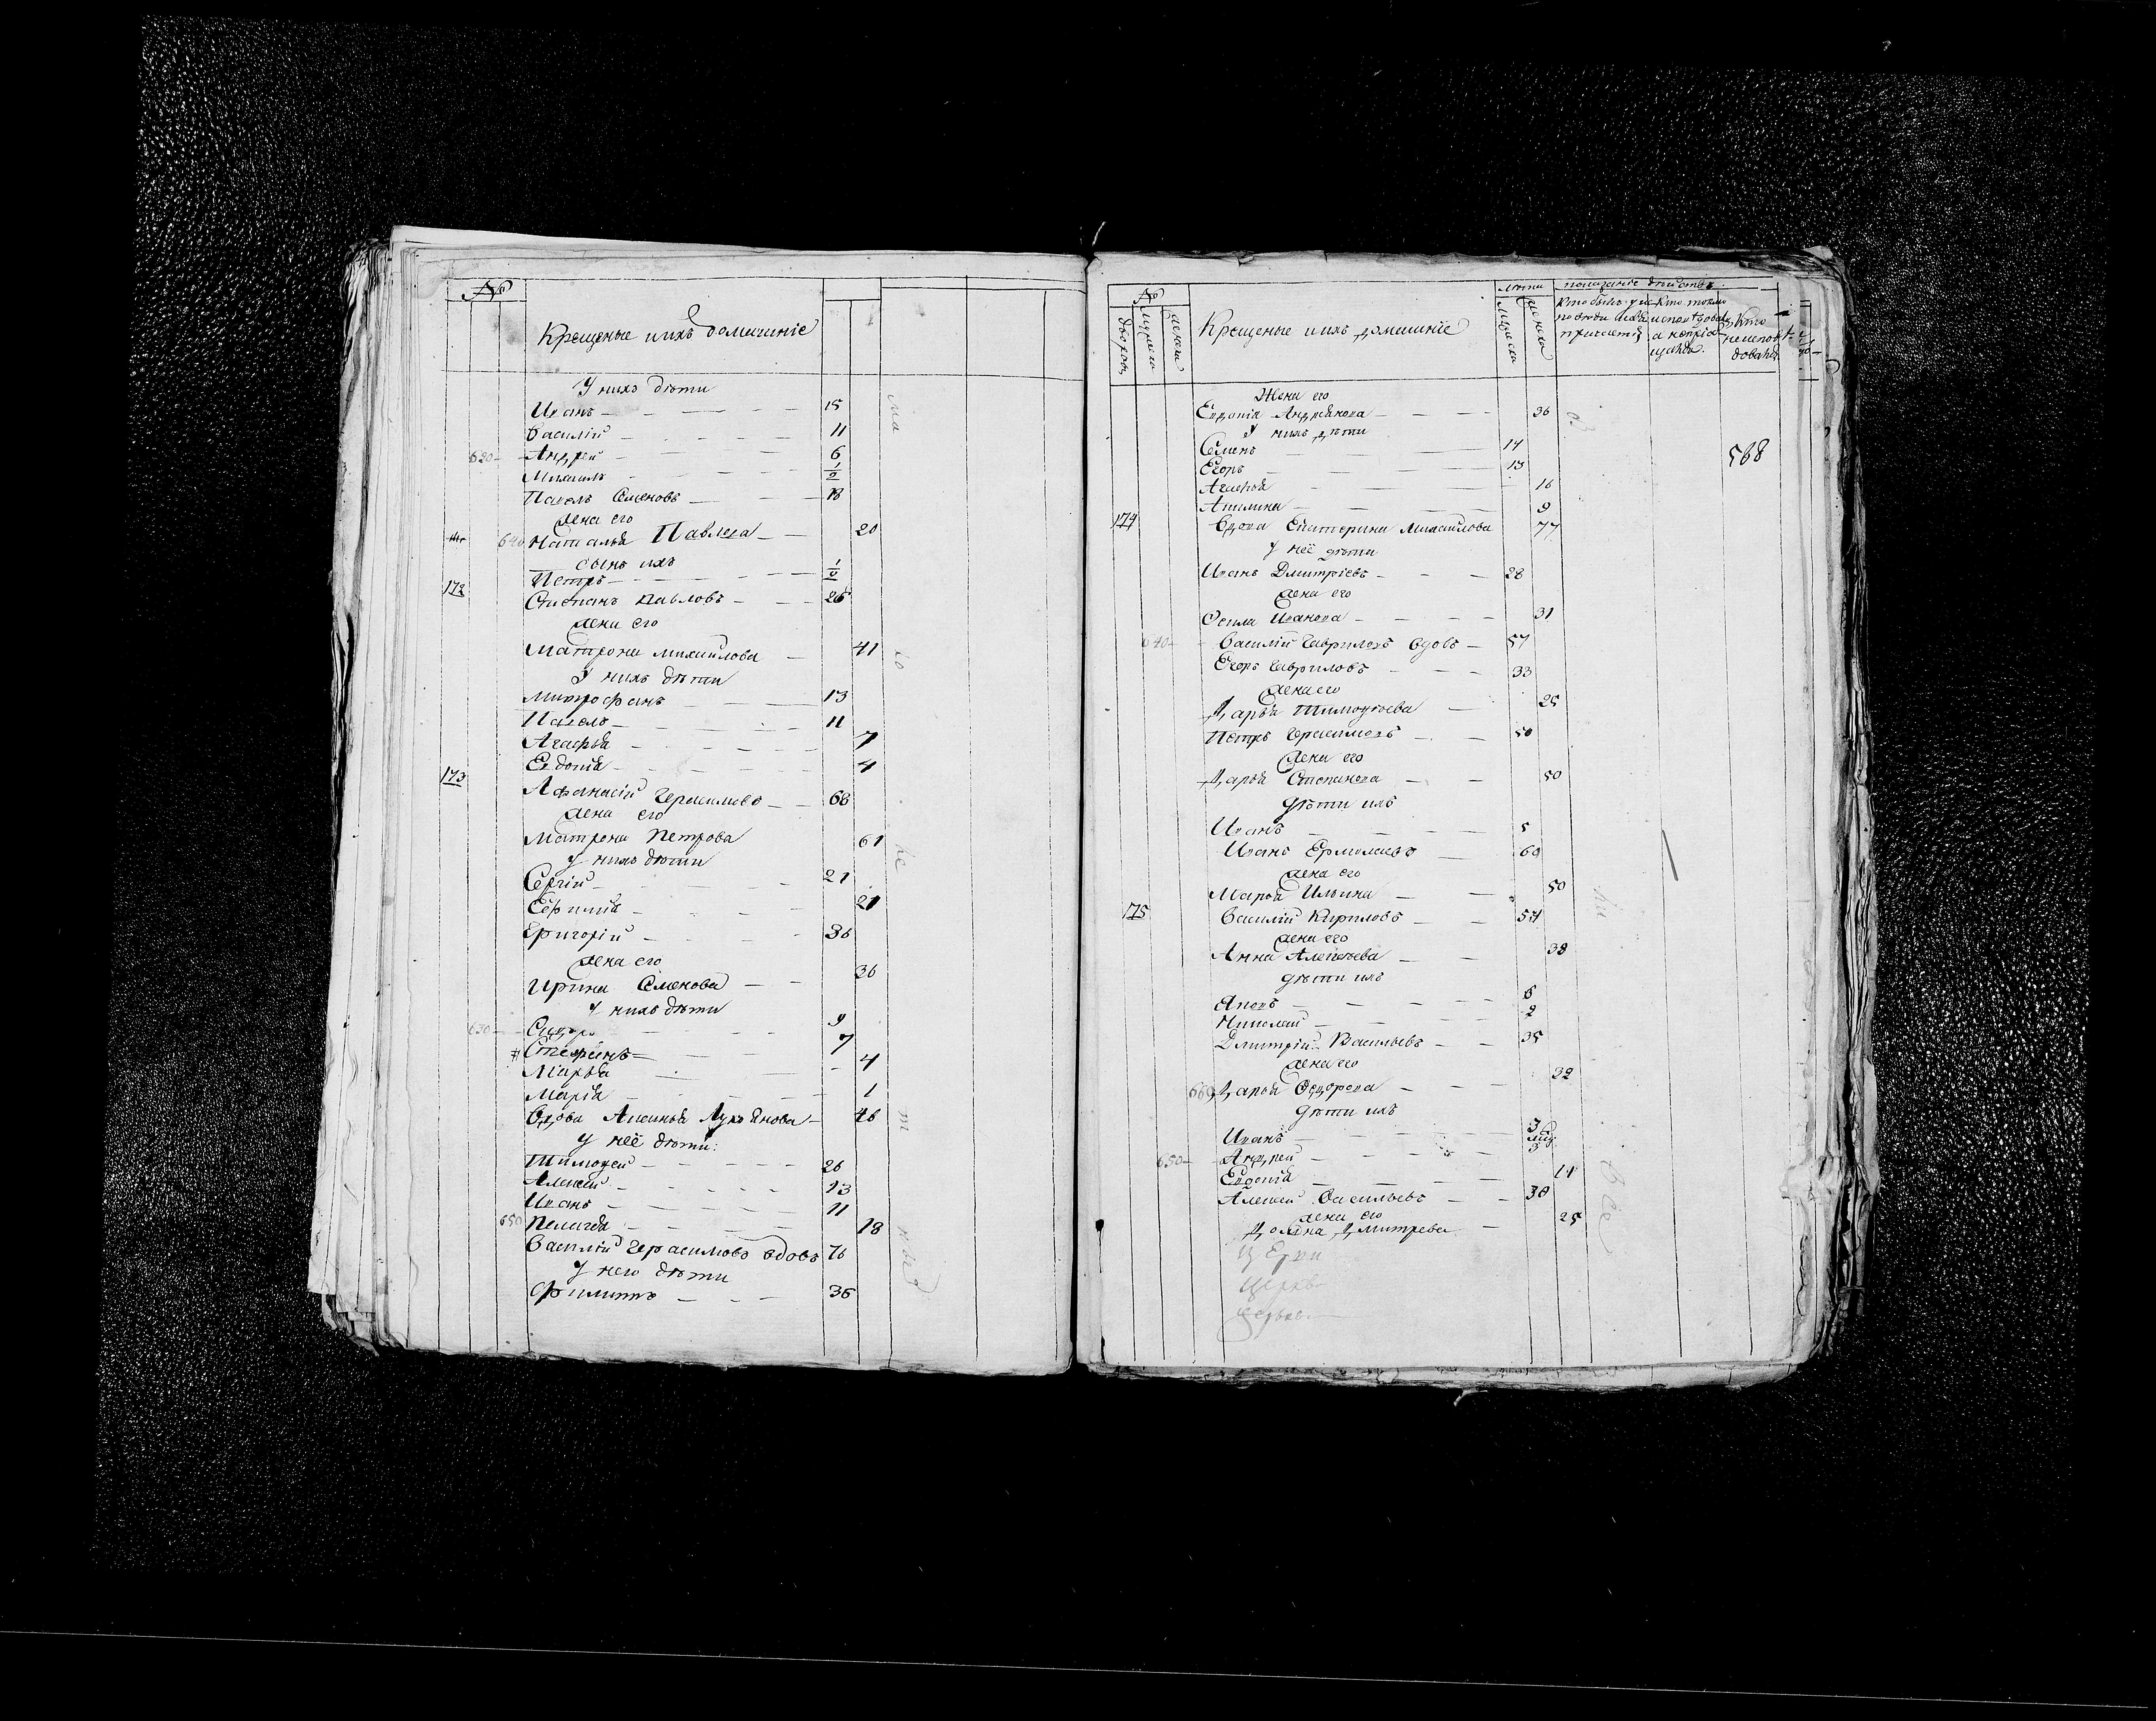 №
Крещеные ихъ домачиніе
У нихъ дѣти
Иванъ 15
Василій 11
620 Андреи 6
Михаилъ 1/2
Павелъ Семеновъ 18
жена его
640 Наталья Павлова 20
сынъ ихъ
Петръ 1/2
172 Степанъ Павловъ 26
жена его
Матрона Михаилова 41
У нихъ дѣти
Митрофанъ 13
Павелъ 11
Агафья 7
Евдокія 4
173 Афанасій Герасимовъ 68
жена его
Матрона Петрова 61
У нихъ дѣти
Сергій 21
Ефимія 21
Григорій 36
жена его
Ирина Семенова 36
У нихъ дѣти
630 Сидоръ 9
Стефанъ 7
Марѳа 4
Марія 1
Вдова Аксинья Лукьянова 46
У неё дѣти:
Тимоѳей 26
Алексей 13
Иванъ 11
650 Пелагея 18
Василій Герасимовъ вдовъ 76
У него дѣти
Филиппъ 36
№
дворовъ
мужеска
женска
Крещеные ихъ домашніе
лѣта
мужеска
женска
показаніе дѣйства
Кто былъ у исповѣди
Кто токмо исповѣдов. а не пріобщался
Кто не исповѣдовался
568
Жена его
Евдокія Андреянова 36
У нихъ дѣти
Семенъ 14
Егоръ 13
Агафья 16
Акилина 9
174 Вдова Екатерина Михаилова 77
У неё дѣти
Иванъ Дмитріевъ 28
жена его
Фекла Иванова 31
640 Василій Гавриловъ вдовъ 57
Егоръ Гавриловъ 33
жена его
Дарья Тимоѳеева 25
Петръ Герасимовъ 50
жена его
Дарья Степанова 50
дѣти ихъ
Иванъ 5
Иванъ Ермолаевъ 60
жена его
Марья Ильина 50
175 Василій Кириловъ 54
жена его
Анна Алексеева 38
дѣти ихъ
Яковъ 6
Николай 2
Дмитрій Васильевъ 35
жена его
660 Дарья Федорова 32
дѣти ихъ
Иванъ 3
650 Андрей
Евдокія 11
Алексей Васильевъ 30
жена его
Домна Дмитрева 25
Церковь